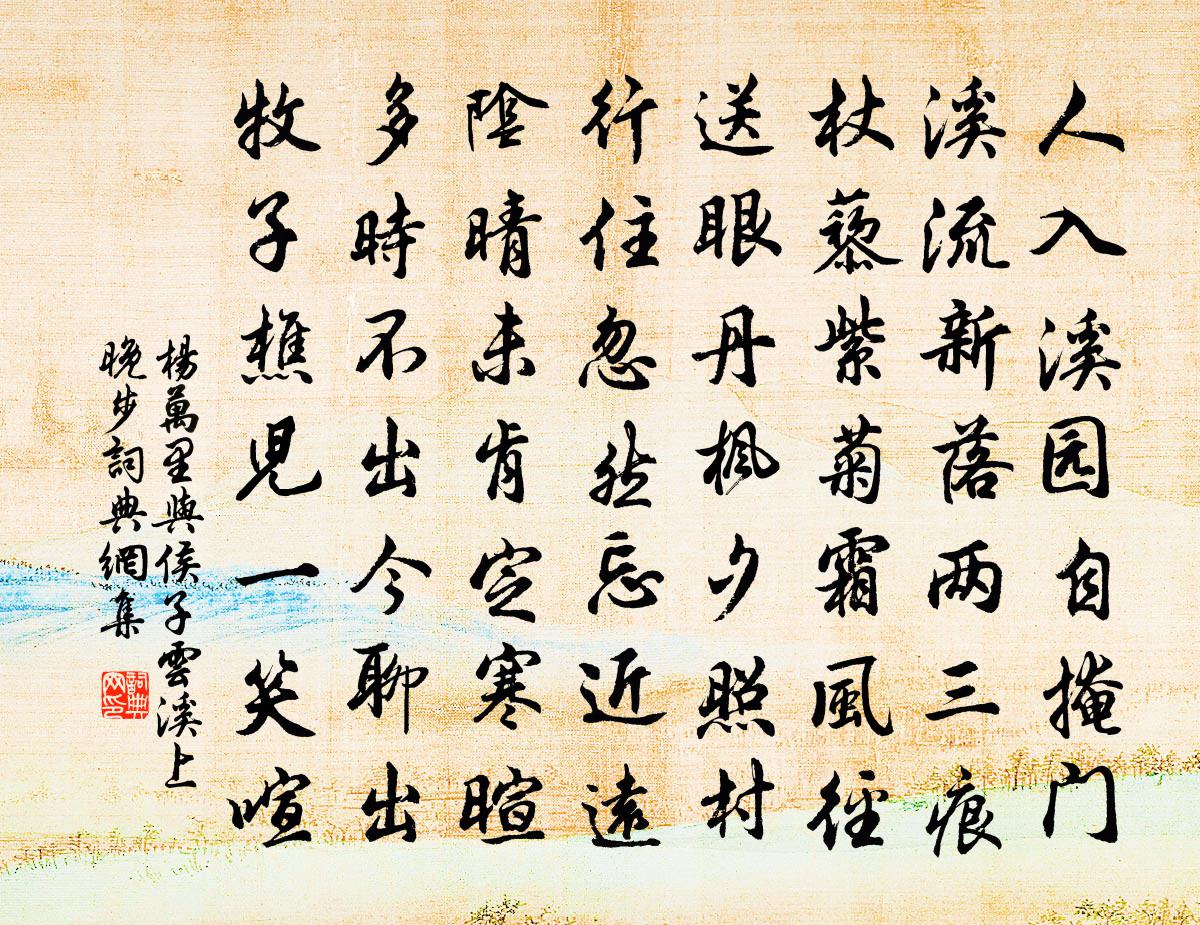 人入溪园自掩门
溪流新落两三痕
杖藜紫菊霜風徑
送眼丹楓夕照村
行住忽然忘近遠
陰晴未肯定寒暄
多時不出今聊出
牧子樵児一笑喧
楊萬里與侯子雲溪上
晚步詞典網集
詞典
网印